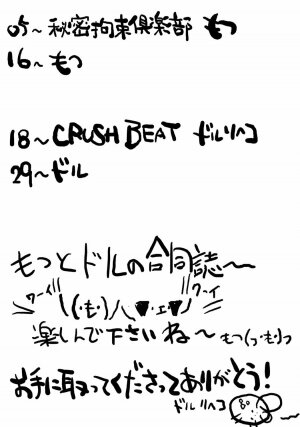 05〜秘密拘束倶楽部 もつ
16〜もつ
18〜CRUSH BEAT ドルリヘコ
29〜ドル
もつとドルの合同誌〜
ワーイ \(・も・)/\▼・ェ・▼/ ワーイ
楽しんで下さいね〜 もつ(っ・も・)っ
お手に取ってくださってありがとう!
ドルリヘコ